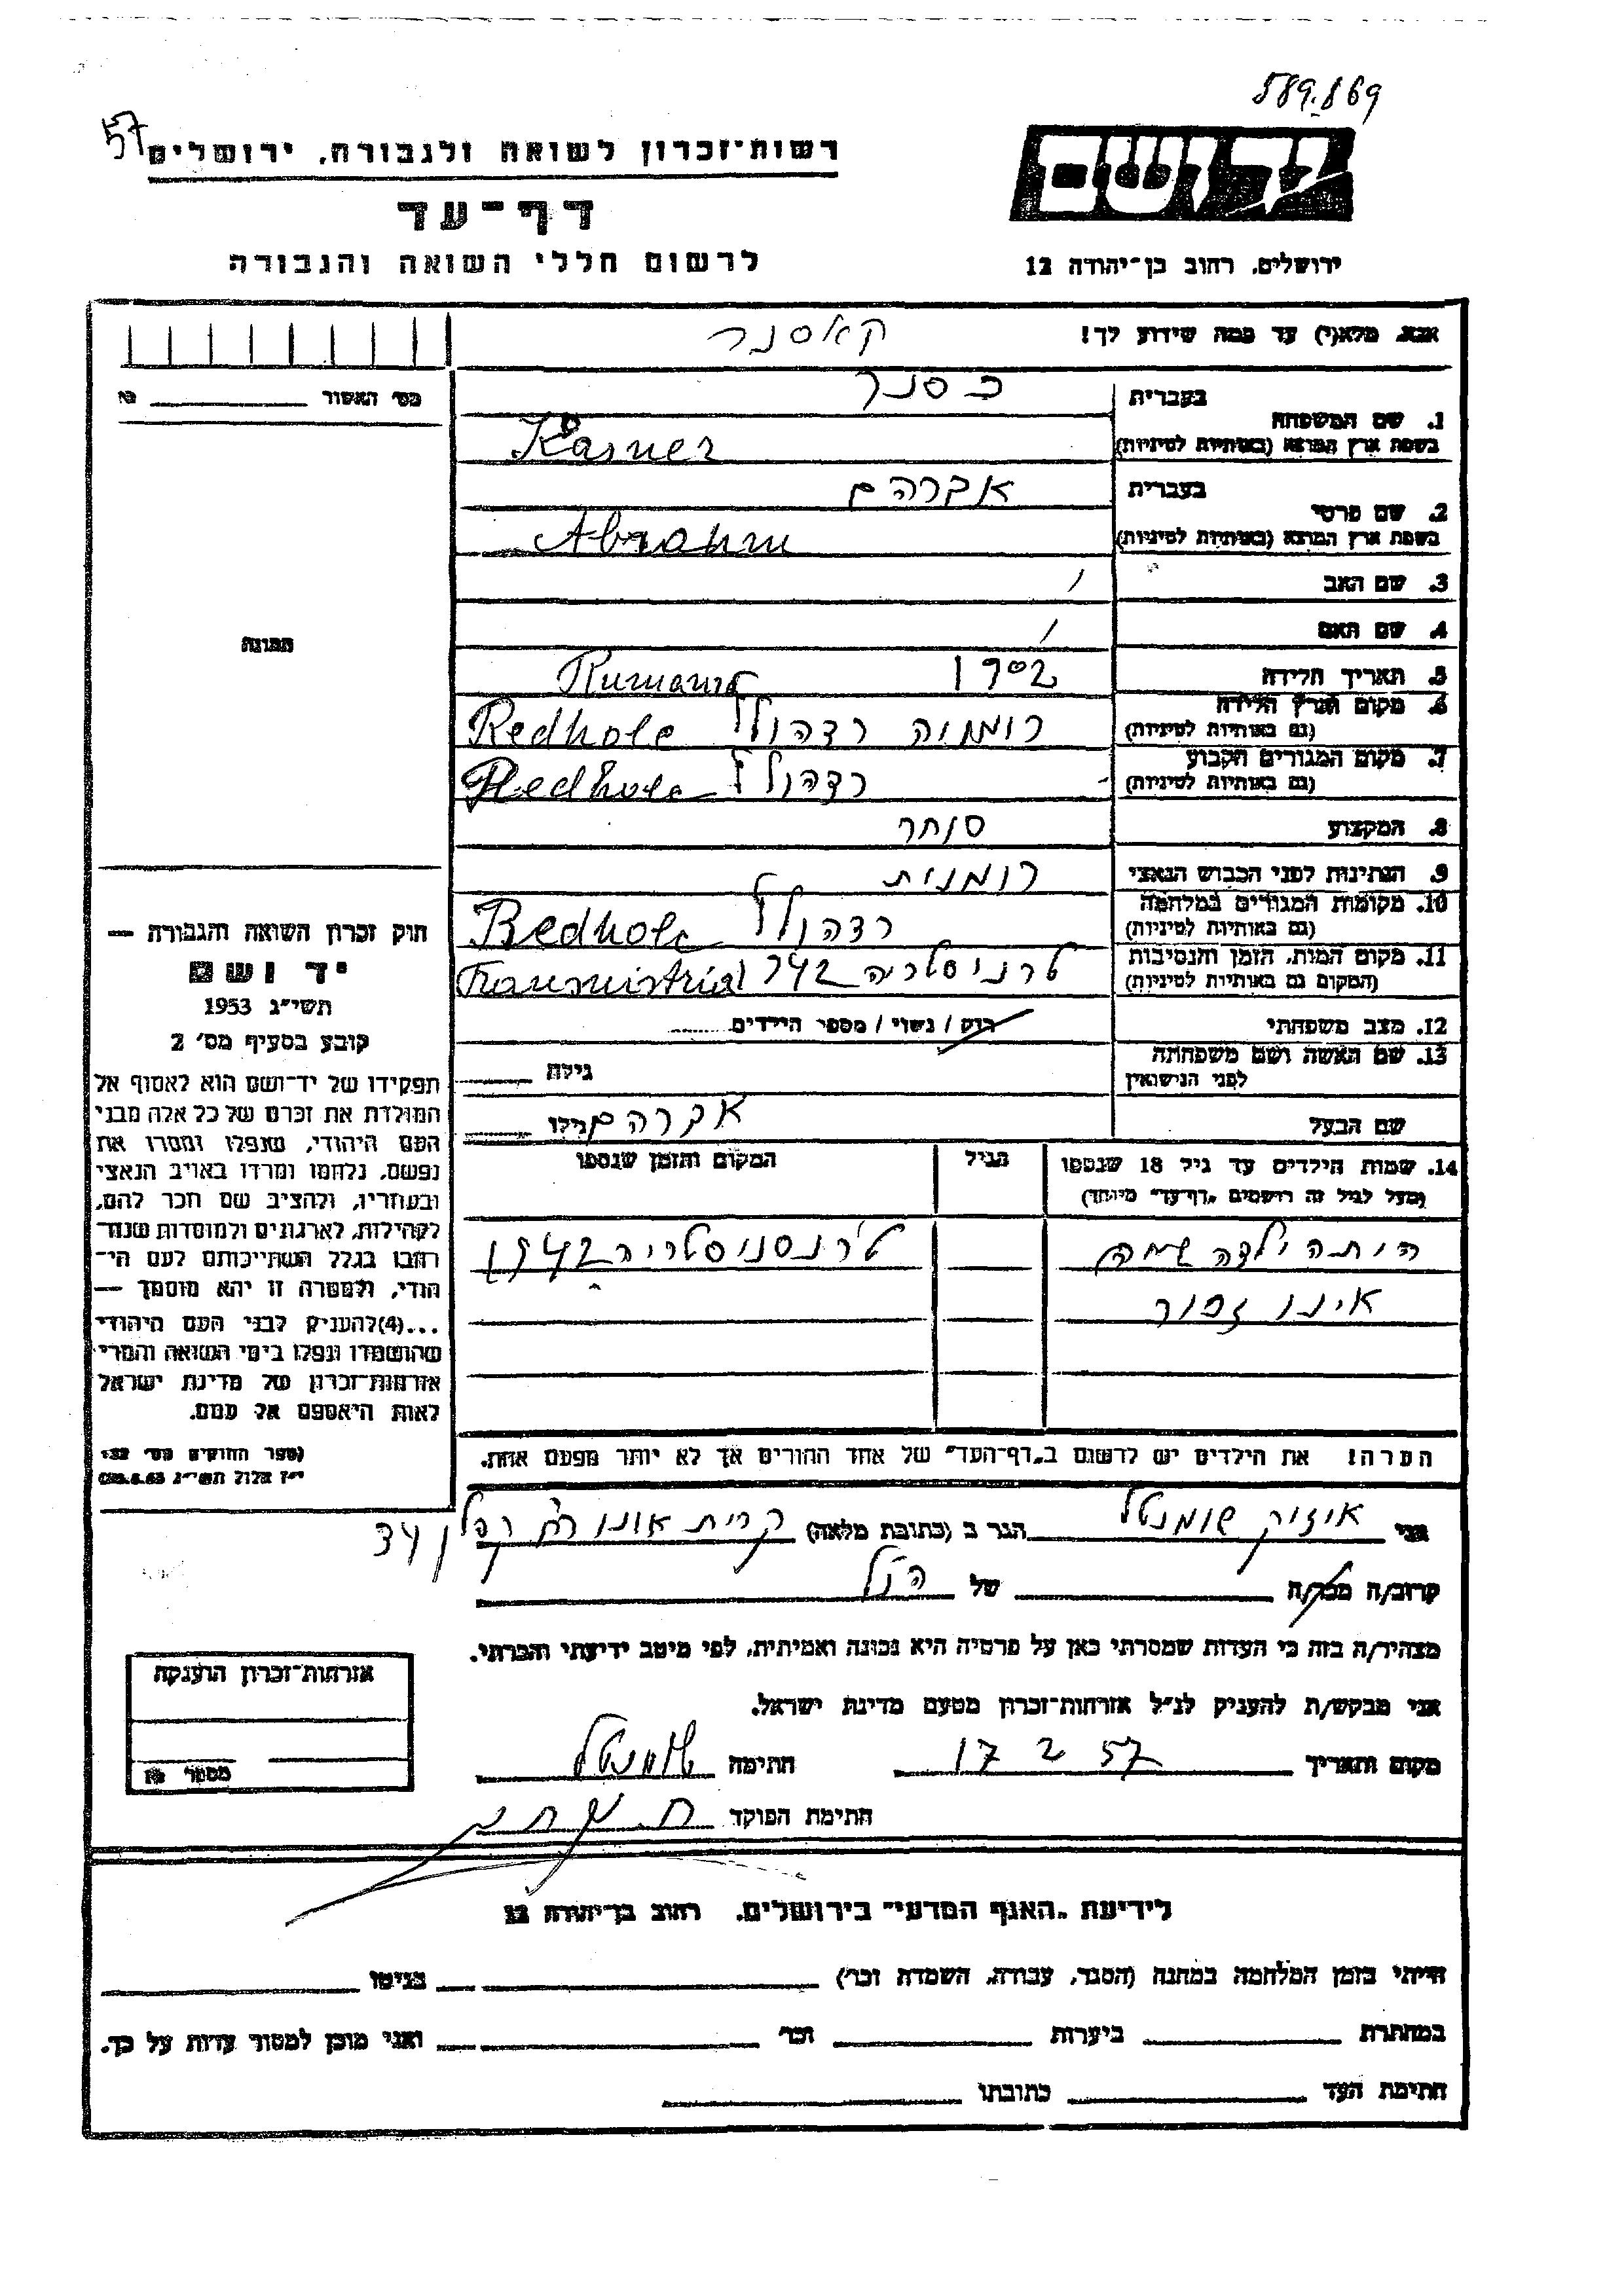 589.869
57
רשות־זכרון לשואה ולגבורה, ירושלים
יד ושם
דף־עד
לרשום חללי השואה והגבורה
ירושלים, רחוב בן־יהודה 12
אנא, מלא(י) עד כמה שידוע לך!
קאסנר
מס' האשור
1. שם המשפחה
בעברית כסנר
בשפת ארץ המוצא (באותיות לטיניות) Kasner
2. שם פרטי
בעברית אברהם
בשפת ארץ המוצא (באותיות לטיניות) Abrahm
3. שם האב /
4. שם האם /
תמונה
5. תאריך הלידה 1902
Rumania
6. מקום וארץ הלידה
(גם באותיות לטיניות) רומניה רדהולץ Redhole
7. מקום המגורים הקבוע
(גם באותיות לטיניות) רדהולץ Redhole
8. המקצוע סוחר
9. הנתינות לפני הכבוש הנאצי רומנית
10. מקומות המגורים במלחמה
(גם באותיות לטיניות) רדהולץ Redhole
11. מקום המות, הזמן והנסיבות
(המקום גם באותיות לטיניות) טרניסטריה 942
12. מצב משפחתי רווק / נשוי / מספר הילדים
13. שם האשה ושם משפחתה
לפני הנישואין גילה
שם הבעל אברהם גילו
14. שמות הילדים עד גיל 18 שנספו הגיל המקום והזמן שנספו
(מעל לגיל זה רושמים „דף־עד" מיוחד)
היתה ילדה שמה טרנסניסטריה 1942
אינו זכור
הערה! את הילדים יש לרשום ב„דף־העד" של אחד ההורים אך לא יותר מפעם אחת.
חוק זכרון השואה והגבורה —
יד ושם
תשי"ג 1953
קובע בסעיף מס' 2
תפקידו של יד־ושם הוא לאסוף אל
המולדת את זכרם של כל אלה מבני
העם היהודי, שנפלו ומסרו את
נפשם, נלחמו ומרדו באויב הנאצי
ובעוזריו, ולהציב שם וזכר להם,
לקהילות, לארגונים ולמוסדות שנח־
רבו בגלל השתייכותם לעם הי־
הודי, ולמטרה זו יהא מוסמך —
...(4)להעניק לבני העם היהודי
שהושמדו ונפלו בימי השואה והמרי
אזרחות־זכרון של מדינת ישראל
לאות היאספם אל עמם.
(ספר החוקים מס' 132
י"ז אלול תשי"ג 28.8.53)
אני איזיק שומנטל הגר ב (כתובת מלאה) קרית אונו 34
קרוב/ה מכר/ה של הנ"ל
מצהיר/ה בזה כי העדות שמסרתי כאן על פרטיה היא נכונה ואמיתית, לפי מיטב ידיעתי והכרתי.
אני מבקש/ת להעניק לנ"ל אזרחות־זכרון מטעם מדינת ישראל.
מקום ותאריך 17 2 57 חתימה שומנטל
חתימת הפוקד
אזרחות־זכרון הוענקה
מספר
לידיעת „האגף המדעי" בירושלים, רחוב בן־יהודה 12
הייתי בזמן המלחמה במחנה (הסגר, עבודה, השמדה וכו') בגיטו
במחתרת ביערות וכו' ואני מוכן למסור עדות על כך.
חתימת העד כתובתו